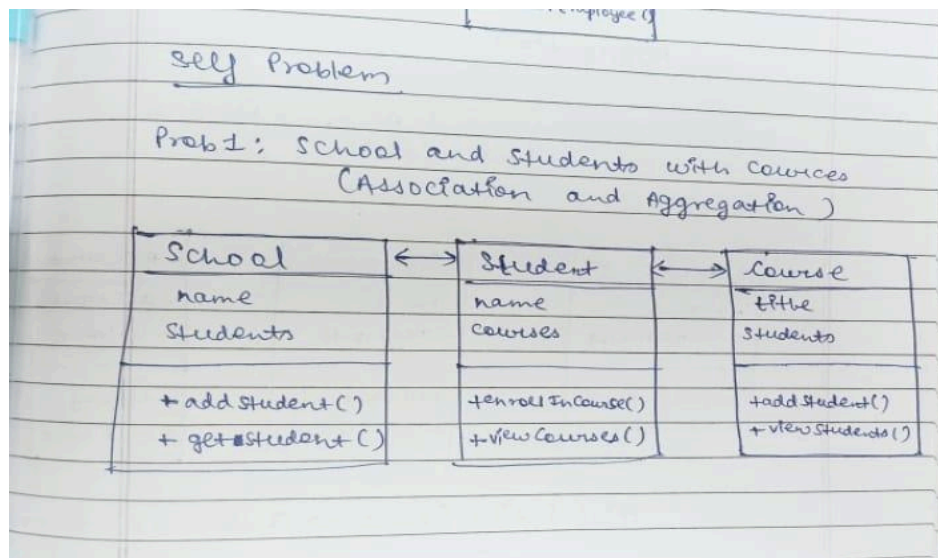 employee()
Self Problem
Prob 1: School and Students with Cources
(Association and Aggregation)
School
name
Students
+ addStudent()
+ getStudent()
Student
name
courses
+enrollInCourse()
+viewCourses()
Course
title
students
+addStudent()
+viewStudents()